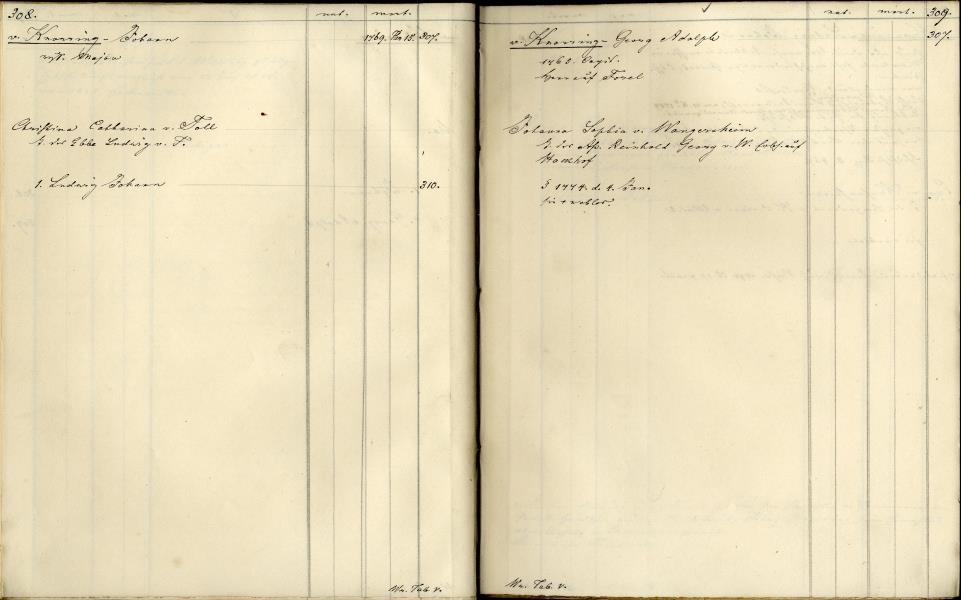 308. nat. mort.
v. Knorring - Johann 1769. 18. 307.
russ. Major
Christina Catharina v. Toll
T. des Ebbe Ludwig v. T.
1. Ludwig Johann 310.
Wr. Tab. V.
nat. mort. 309.
v. Knorring - Georg Adolph 307.
1768.
Herr auf
Johanna Sophia v. Wangersheim
T. des Ass. Reinhold Georg v. W. auf
1774. d. 4. Jan.
Wr. Tab. V.